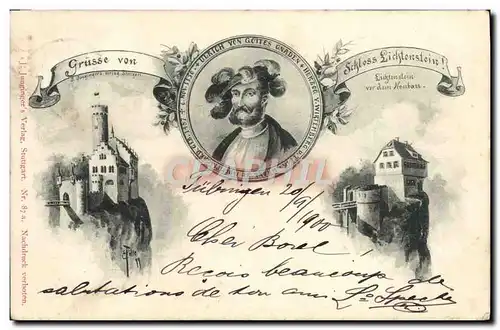 Grüsse von
Schloss Lichtenstein!
Lichtenstein
vor dem Neubau.
ULRICH VON GOTTES GNADEN HERZOG V. WIRTEMBERG
CARTORUM
Tübingen 20/9/1900
Cher Borel
Reçois beaucoup de
salutations de ton ami
J. Junginger's Verlag, Stuttgart. Nr. 874. Nachdruck verboten.